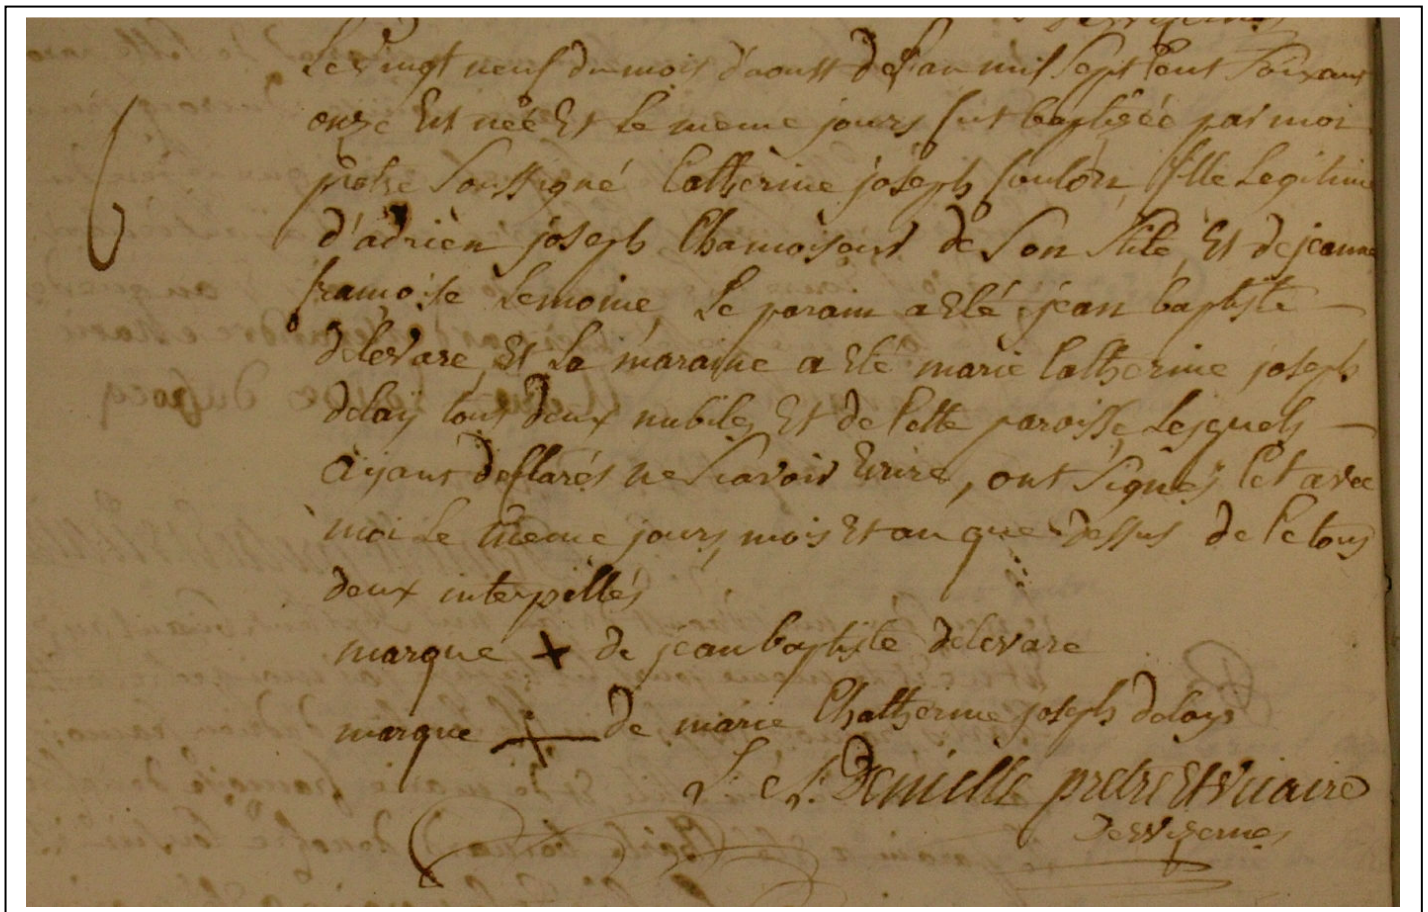 Le vingt neuf du mois d'aoust de l'an mil Sept Cent Soixant
onze Est née Et Le meme jours fut baptisée par moi
pretre Soussigné Catherine joseph Coulon fille Legitime
d'adrien joseph Chamoisard de Son Stile Et de jeanne
françoise Lemoine Le parain a Eté jean baptiste
delevare Et La maraine a Eté marie Catherine joseph
delaÿ tous deux nubiles Et de Cette paroisse Lesquels
aÿant desclarés ne Scavoir Ecrire, ont Signés Cet avec
moi Le meme jours mois Et an que dessus de Ce tous
deux interpellés
marque de jean baptiste delevare
marque de marie Chatherine joseph delays
pretre Et Vicaire